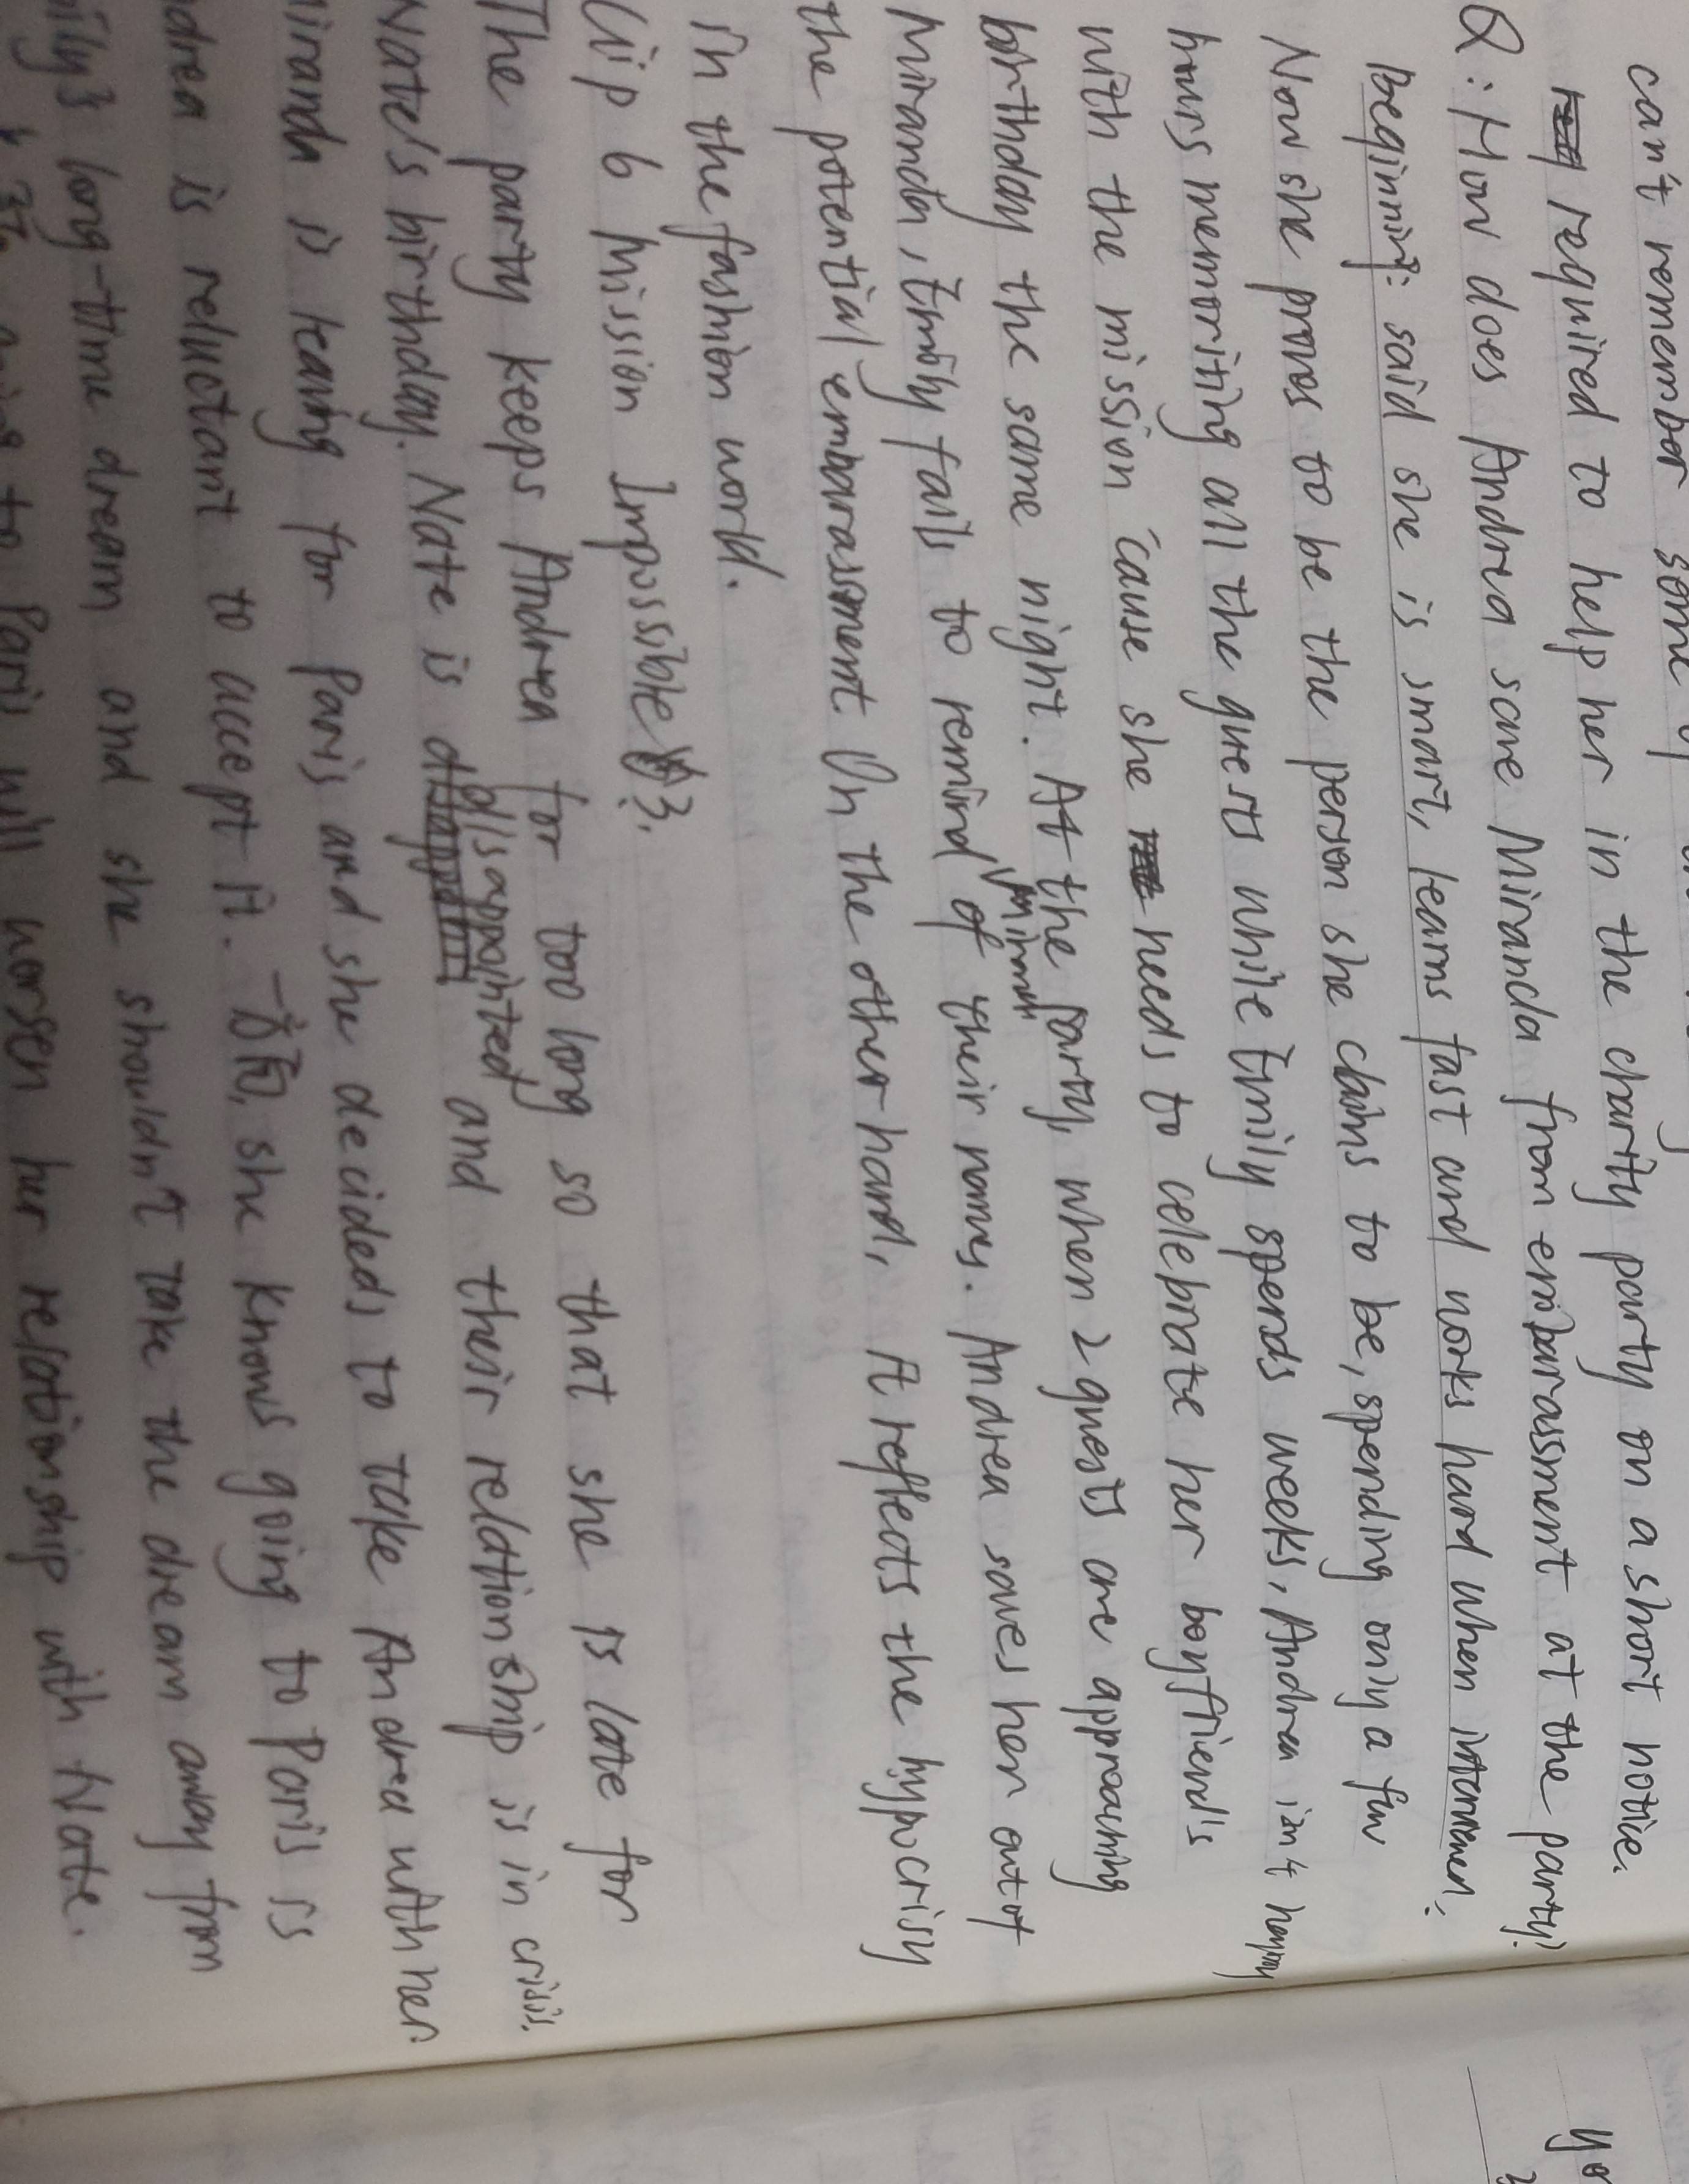 can't remember some
required to help her in the charity party on a short notice.
Q: How does Andrea save Miranda from embarassment at the party?
beginning: said she is smart, learns fast and works hard when
Now she proves to be the person she claims to be, spending only a few
hours memoriting all the guests while Emily spends weeks, Andrea isn't happy
with the mission cause she needs to celebrate her boyfriend's
birthday the same night. At the party, when 2 guests are approaching
Miranda, Emily fails to remind Miranda of their names. Andrea saves her out of
the potential embarassment On the other hand, it reflects the hypocrisy
in the fashion world.
Clip 6 Mission Impossible
The party keeps Andrea for too long so that she is late for
Nate's birthday. Nate is disappointed and their relationship is in crisis.
Miranda is leaving for Paris and she decides to take Andrea with her
ndrea is reluctant to accept it. 一方面, she knows going to Paris is
mily's long-time dream and she shouldn't take the dream away from
to Paris will worsen her relationship with Nate.